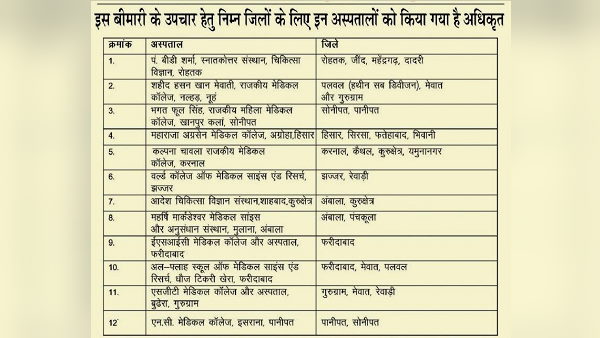 इस बीमारी के उपचार हेतु निम्न जिलों के लिए इन अस्पतालों को किया गया है अधिकृत
क्रमांक अस्पताल जिले
1. पं. बीडी शर्मा, स्नातकोत्तर संस्थान, चिकित्सा रोहतक, जींद, महेंद्रगढ़, दादरी
विज्ञान, रोहतक
2. शहीद हसन खान मेवाती, राजकीय मेडिकल पलवल (हथीन सब डिवीजन), मेवात
कॉलेज, नल्हड़, नूंह और गुरुग्राम
3. भगत फूल सिंह, राजकीय महिला मेडिकल सोनीपत, पानीपत
कॉलेज, खानपुर कलां, सोनीपत
4. महाराजा अग्रसेन मेडिकल कॉलेज, अग्रोहा,हिसार हिसार, सिरसा, फतेहाबाद, भिवानी
5. कल्पना चावला राजकीय मेडिकल करनाल, कैथल, कुरुक्षेत्र, यमुनानगर
कॉलेज, करनाल
6. वर्ल्ड कॉलेज ऑफ मेडिकल साइंस एंड रिसर्च, झज्जर, रेवाड़ी
झज्जर
7. आदेश चिकित्सा विज्ञान संस्थान,शाहबाद,कुरुक्षेत्र अंबाला, कुरुक्षेत्र
8. महर्षि मार्कंडेश्वर मेडिकल साइंस अंबाला, पंचकूला
और अनुसंधान संस्थान, मुलाना, अंबाला
9. ईएसआईसी मेडिकल कॉलेज और अस्पताल, फरीदाबाद
फरीदाबाद
10. अल-पलाह स्कूल ऑफ मेडिकल साइंस एंड फरीदाबाद, मेवात, पलवल
रिसर्च, धौज टिकरी खेरा, फरीदाबाद
11. एसजीटी मेडिकल कॉलेज और अस्पताल, गुरुग्राम, मेवात, रेवाड़ी
बुढेरा, गुरुग्राम
12 एन.सी. मेडिकल कॉलेज, इसराना, पानीपत पानीपत, सोनीपत